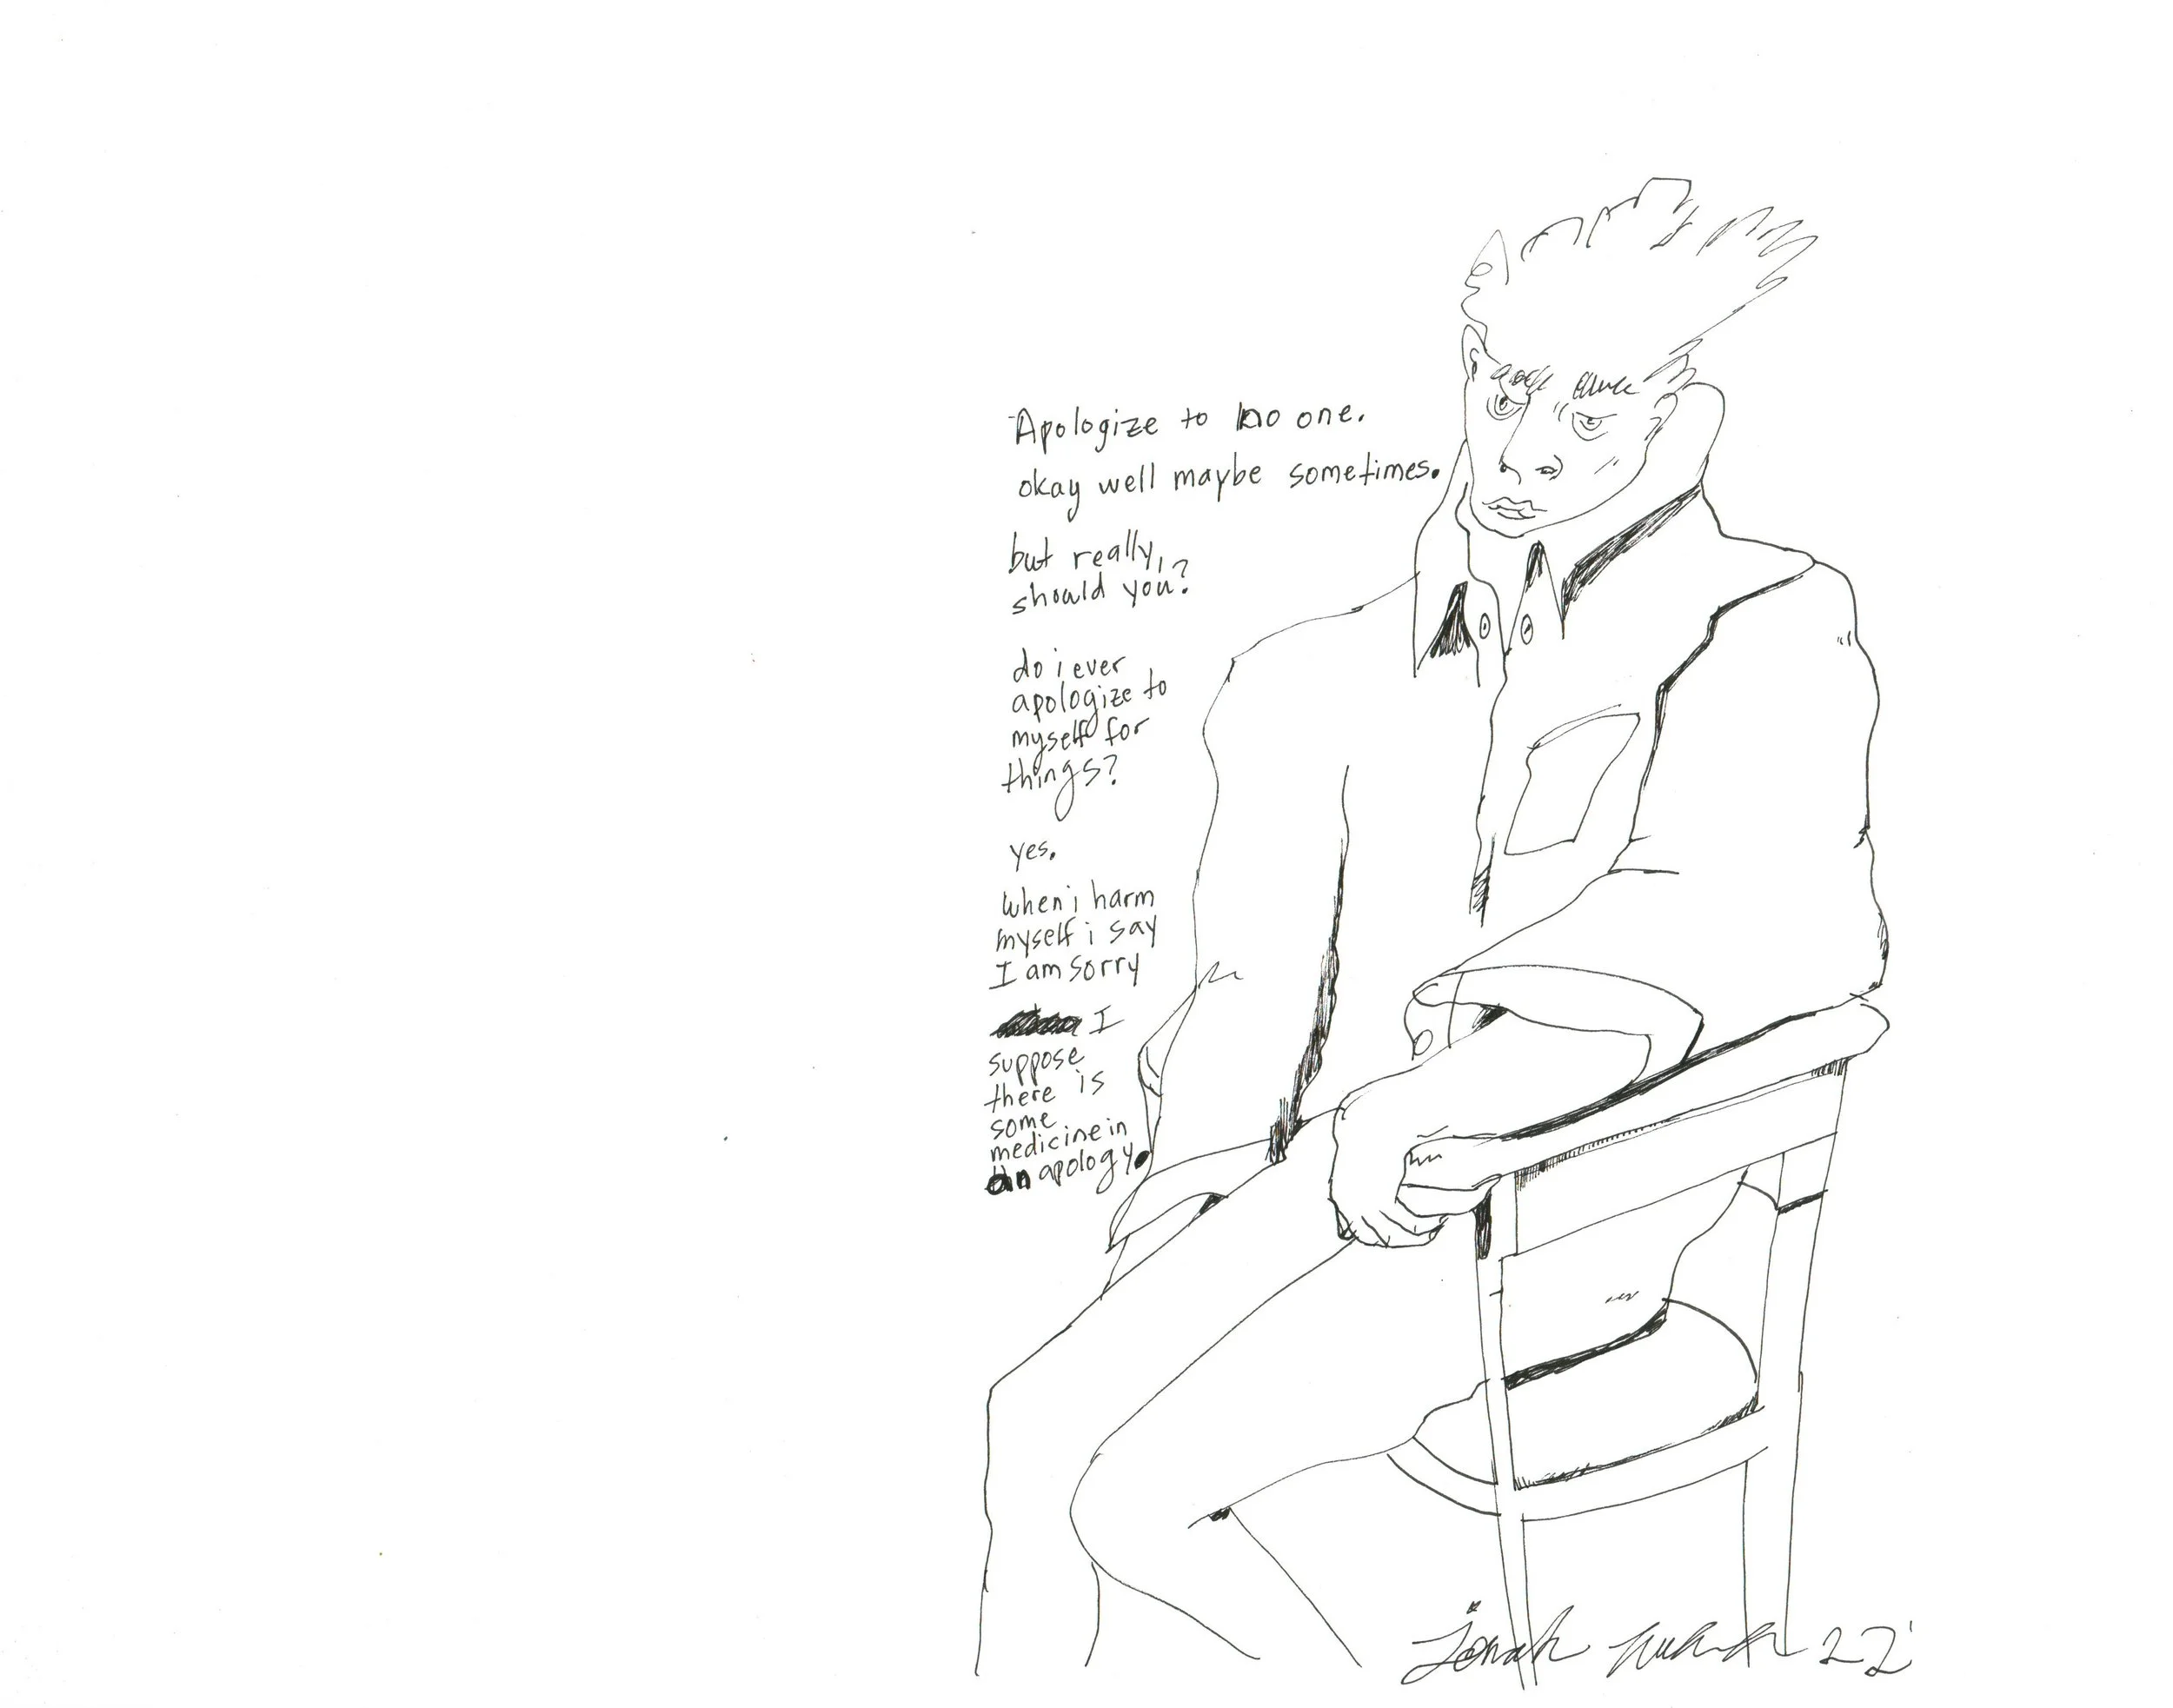 Apologize to no one.
okay well maybe sometimes.
but really,
should you?
do i ever
apologize to
myself for
things?
yes.
when i harm
myself i say
I am sorry
I
suppose
there is
some
medicine in
an apology.
Jonah 22'